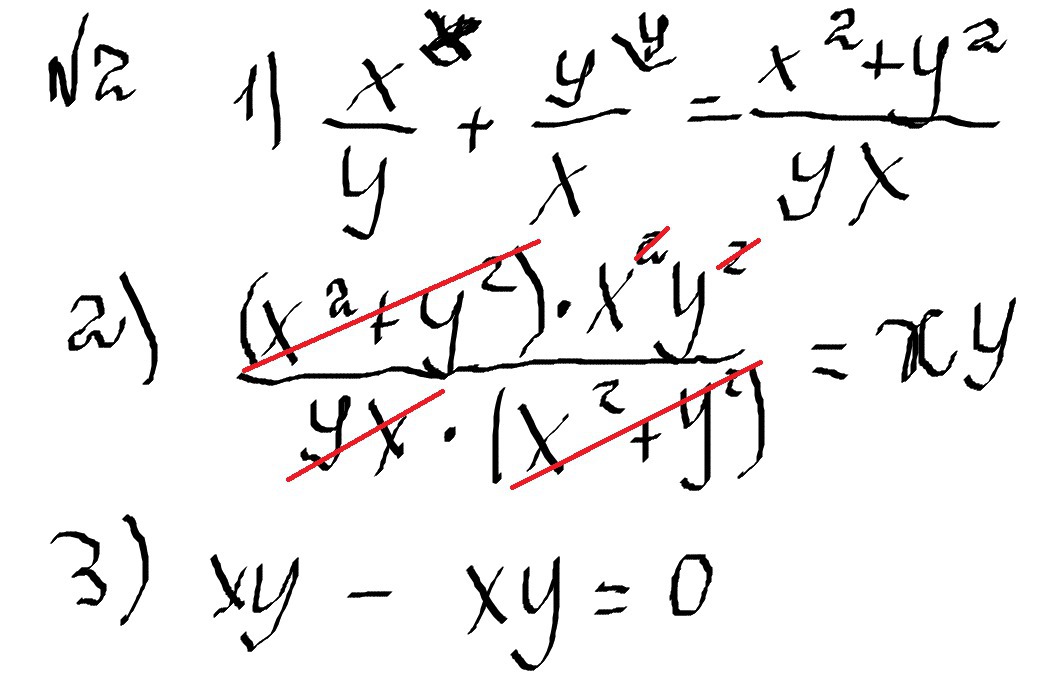 √2 1) x^x/y + y^y/x = (x^2+y^2)/(yx)
2) ((x^2+y^2)·x^2y^2)/(yx·(x^2+y^2)) = xy
3) xy - xy = 0